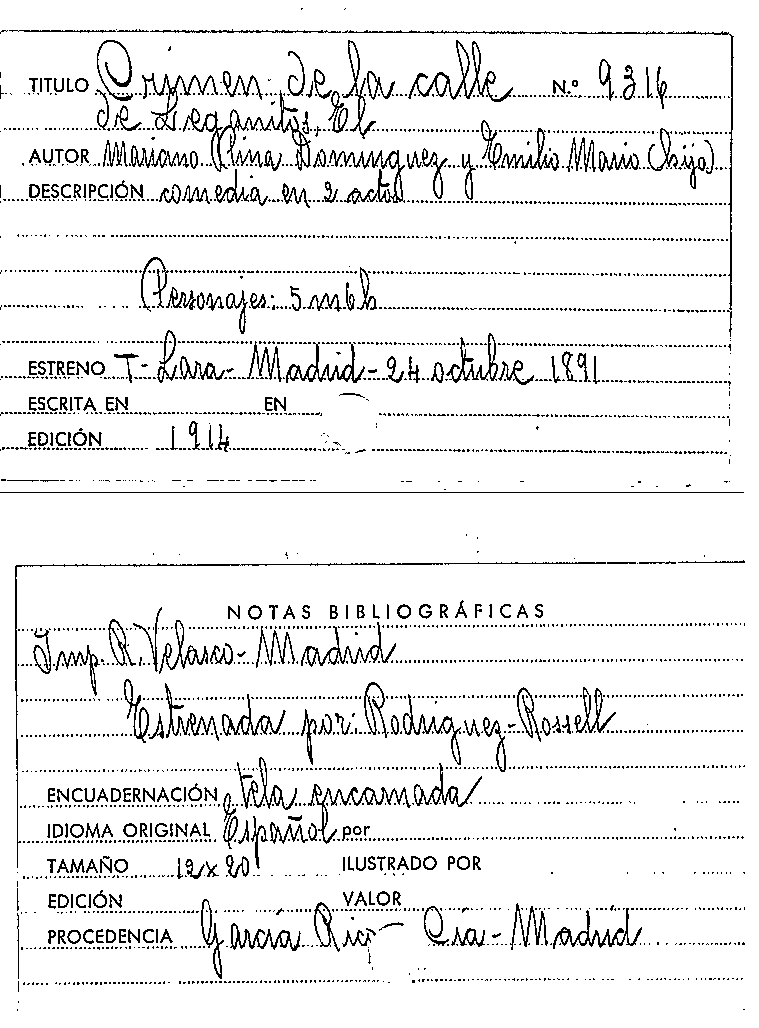 TITULO Crimen de la calle N.º 9316
de Leganitos, El
AUTOR Mariano Pina Dominguez y Emilio Mario (hijo)
DESCRIPCIÓN comedia en 2 actos
Personajes: 5 m 6 h
ESTRENO T- Lara- Madrid- 24 octubre 1891
ESCRITA EN EN
EDICIÓN 1914
NOTAS BIBLIOGRÁFICAS
Imp. R. Velasco- Madrid
Estrenada por: Rodriguez- Rossell
ENCUADERNACIÓN tela encarnada
IDIOMA ORIGINAL Español por
TAMAÑO 12 x 20 ILUSTRADO POR
EDICIÓN VALOR
PROCEDENCIA García Rico Cía- Madrid